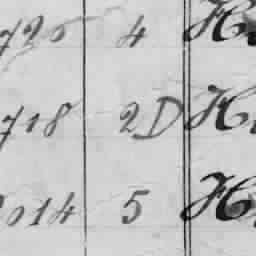 725 4 H
718 2D H
014 5 H